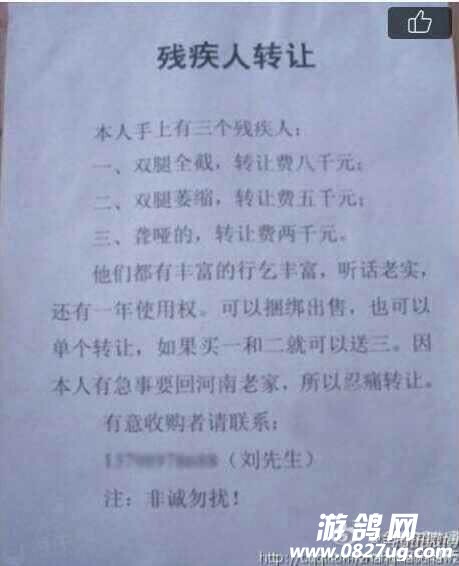 残疾人转让
本人手上有三个残疾人：
一、双腿全截，转让费八千元；
二、双腿萎缩，转让费五千元；
三、聋哑的，转让费两千元。
他们都有丰富的行乞丰富，听话老实，
还有一年使用权。可以捆绑出售，也可以
单个转让，如果买一和二就可以送三。因
本人有急事要回河南老家，所以忍痛转让。
有意收购者请联系：
（刘先生）
注：非诚勿扰！
游鸽网
www.0827ug.com